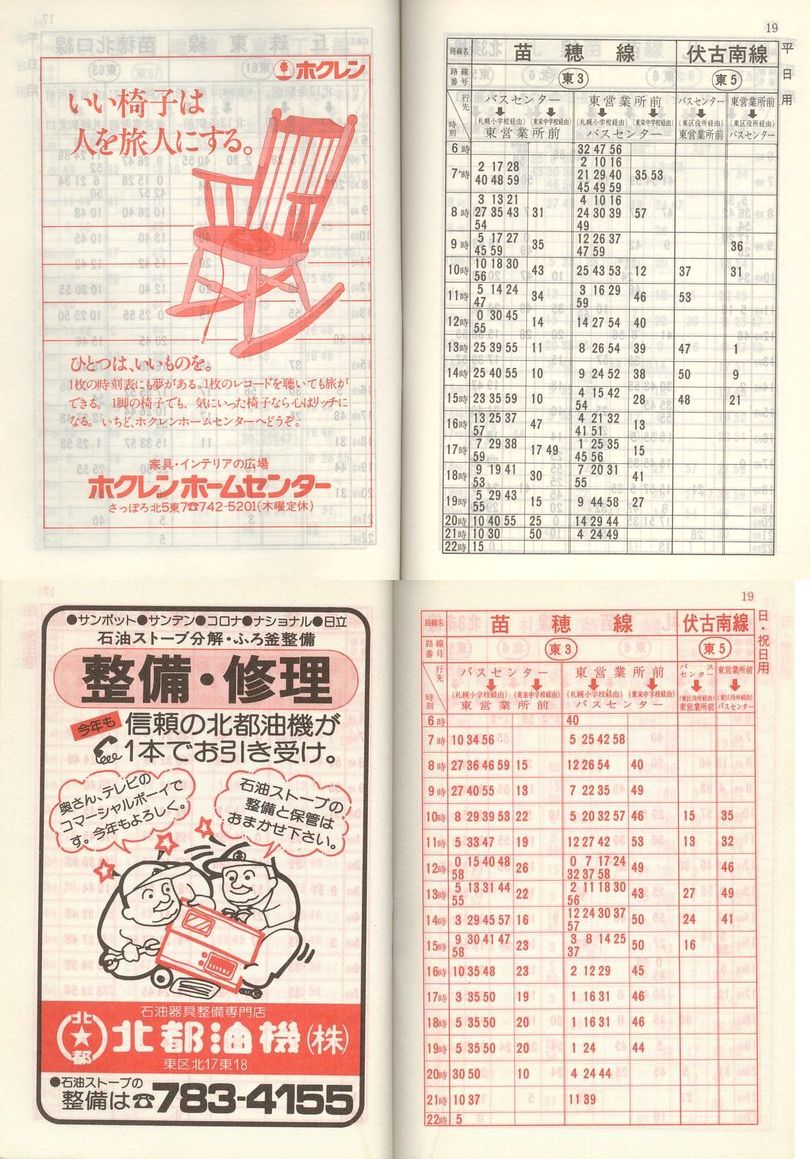 ホクレン
いい椅子は
人を旅人にする。
ひとつは、いいものを。
1枚の時刻表にも夢がある。1枚のレコードを聴いても旅が
できる。1脚の椅子でも、気にいった椅子なら心はリッチに
なる。いちど、ホクレンホームセンターへどうぞ。
家具・インテリアの広場
ホクレンホームセンター
さっぽろ北5東7☎742-5201(木曜定休)
19
平日用
路線名 苗穂線 伏古南線
路線番号 東3 東5
行先 時刻
バスセンター 東営業所前 バスセンター 東営業所前
(札幌小学校経由) (東栄中学校経由) (札幌小学校経由) (東栄中学校経由) (東区役所経由) (東区役所経由)
東営業所前 バスセンター 東営業所前 バスセンター
6時 32 47 56
7時 2 17 28 40 48 59 2 10 16 21 29 40 45 49 59 35 53
8時 3 13 21 27 35 43 54 31 4 10 16 24 30 39 49 57
9時 5 17 27 45 59 35 12 26 37 47 59 36
10時 10 18 30 56 43 25 43 53 12 37 31
11時 5 14 24 47 34 3 16 29 59 46 53
12時 0 30 45 55 14 14 27 54 40
13時 25 39 55 11 8 26 54 39 47 1
14時 25 40 55 10 9 24 52 38 50 9
15時 23 35 59 10 4 15 42 54 28 48 21
16時 13 25 37 57 47 4 21 32 41 51 13
17時 7 29 38 59 17 49 1 25 35 45 56 15
18時 9 19 41 53 30 7 20 31 55 41
19時 5 29 43 55 15 9 44 58 27
20時 10 40 55 25 14 29 44
21時 10 30 50 4 24 49
22時 15
●サンポット●サンデン●コロナ●ナショナル●日立
石油ストーブ分解・ふろ釜整備
整備・修理
今年も 信頼の北都油機が
1本でお引き受け。
奥さん、テレビの
コマーシャルボーイで
す。今年もよろしく。
石油ストーブの
整備と保管は
おまかせ下さい。
石油器具整備専門店
北★都 北都油機(株)
東区北17東18
●石油ストーブの
整備は☎783-4155
19
日・祝日用
路線名 苗穂線 伏古南線
路線番号 東3 東5
行先 時刻
バスセンター 東営業所前 バスセンター 東営業所前
(札幌小学校経由) (東栄中学校経由) (札幌小学校経由) (東栄中学校経由) (東区役所経由) (東区役所経由)
東営業所前 バスセンター 東営業所前 バスセンター
6時 40
7時 10 34 56 5 25 42 58
8時 27 36 46 59 15 12 26 54 40
9時 27 40 55 13 7 22 35 49
10時 8 29 39 53 22 5 20 32 57 46 15 35
11時 5 33 47 19 12 27 42 53 13 32
12時 0 15 40 48 58 26 0 7 17 24 32 37 58 49 46
13時 5 13 31 44 55 22 2 11 18 30 56 43 27 49
14時 3 29 45 57 16 12 24 30 37 57 50 24 41
15時 9 30 41 47 58 23 3 8 14 25 37 50 16
16時 10 35 48 23 2 12 29 45
17時 3 35 50 19 1 16 31 46
18時 5 35 50 20 1 16 31 46
19時 5 35 50 20 1 24 44
20時 30 50 10 4 24 44
21時 10 37 11 39
22時 5